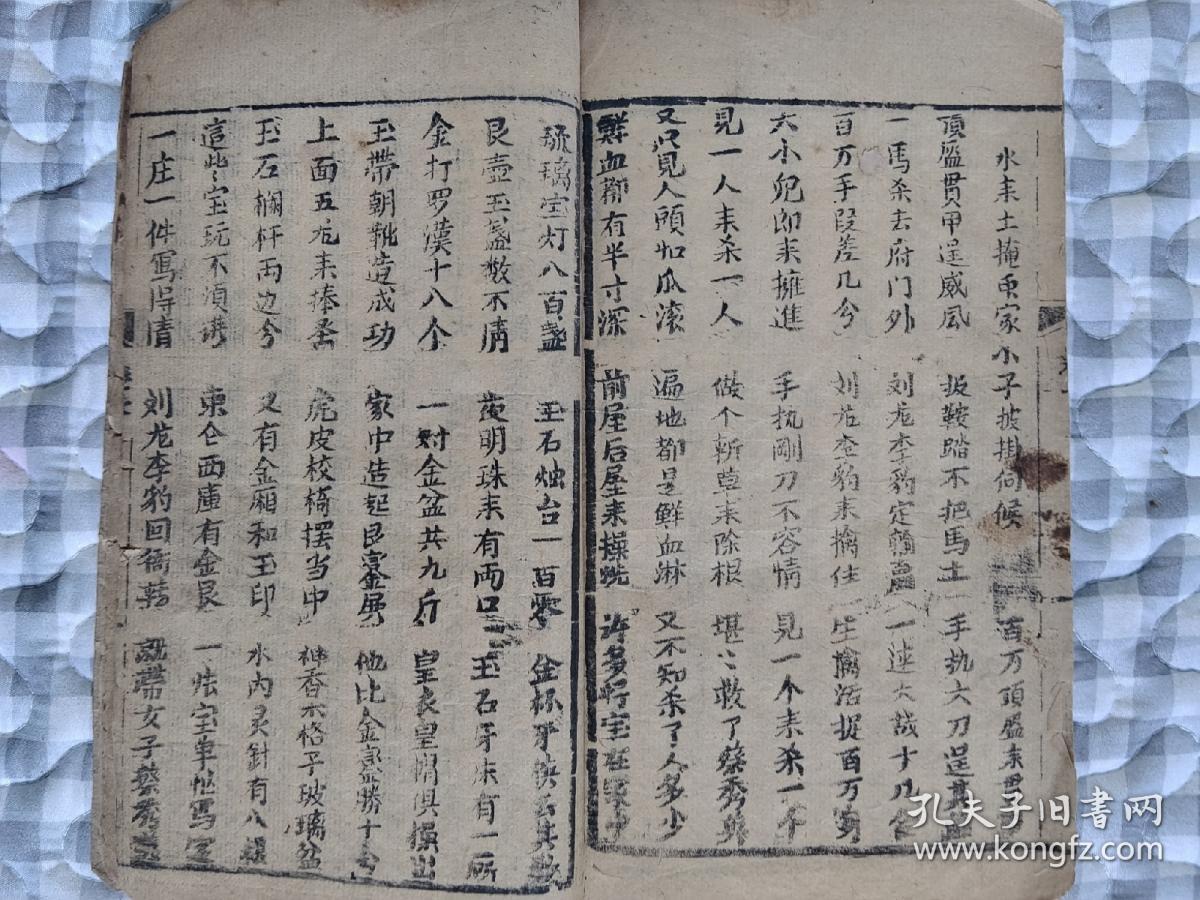 水来土掩東家 小子披掛伺候 百万頂盔来貫
頂盔貫甲逞威風 扳鞍踏不把馬上 手执大刀逞其
一馬杀去府門外 刘尨李豹定輸贏 一連大战十几合
百万手段差几兮 刘尨李豹来擒住 生擒活捉百万
大小兒郎来擁進 手执剛刀不容情 見一个来杀一个
見一人来杀一人 做个斬草来除根 堪〻救了蔡秀英
又只見人頭如瓜滚 遍地都是鮮血淋 又不知杀了人多少
鮮血都有半寸深 前屋后屋来操 許多宝在家中
琉璃宝灯八百盏 玉石烛台一百零 金杯牙筷
艮壶玉盞数不清 夜明珠来有兩口 玉石牙床有一
金打罗漢十八个 一對金盆共九斤 皇衣皇帽俱操出
玉帶朝靴造成功 家中造起艮銮 他比金銮勝十分
上面五尨来捧 虎皮校椅摆当中 神香木格子玻璃盆
玉石欄杆兩边分 又有金廂和玉印 水内灵針有八
這些〻宝玩不須 東仓西庫有金艮 一張宝单他寫
一庄一件寫得清 刘尨李豹回衙 就帶女子蔡秀英
孔夫子旧書网
www.kongfz.com